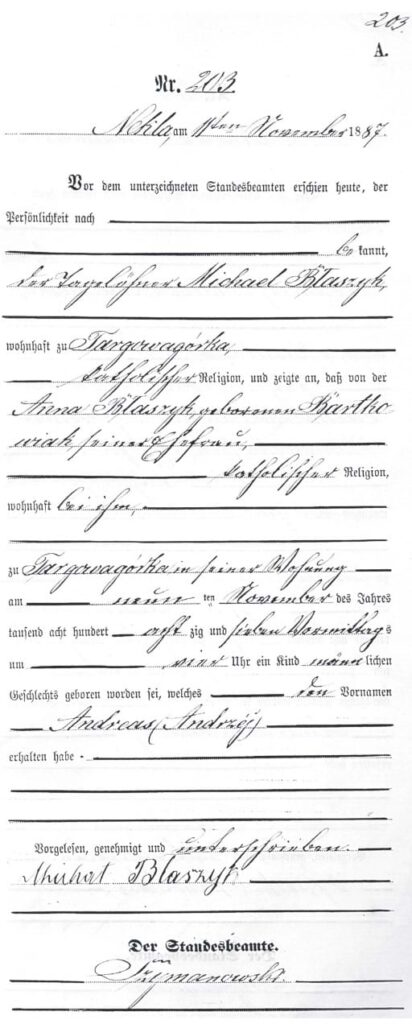 203.
A.
Nr. 203.
Nekla, am 11ten November 1887.
Vor dem unterzeichneten Standesbeamten erschien heute, der
Persönlichkeit nach
bekannt,
der Tagelöhner Michael Błaszyk,
wohnhaft zu Targowagórka,
katholischer Religion, und zeigte an, daß von der
Anna Błaszyk geborenen Bartko
wiak, seiner Ehefrau,
katholischer Religion,
wohnhaft bei ihm,
zu Targowagórka in seiner Wohnung
am neunten November des Jahres
tausend acht hundert achtzig und sieben Vormittags
um vier Uhr ein Kind männlichen
Geschlechts geboren worden sei, welches den Vornamen
Andreas (Andrzéj)
erhalten habe.
Vorgelesen, genehmigt und unterschrieben.
Michał Błaszyk
Der Standesbeamte.
Szymanowski.